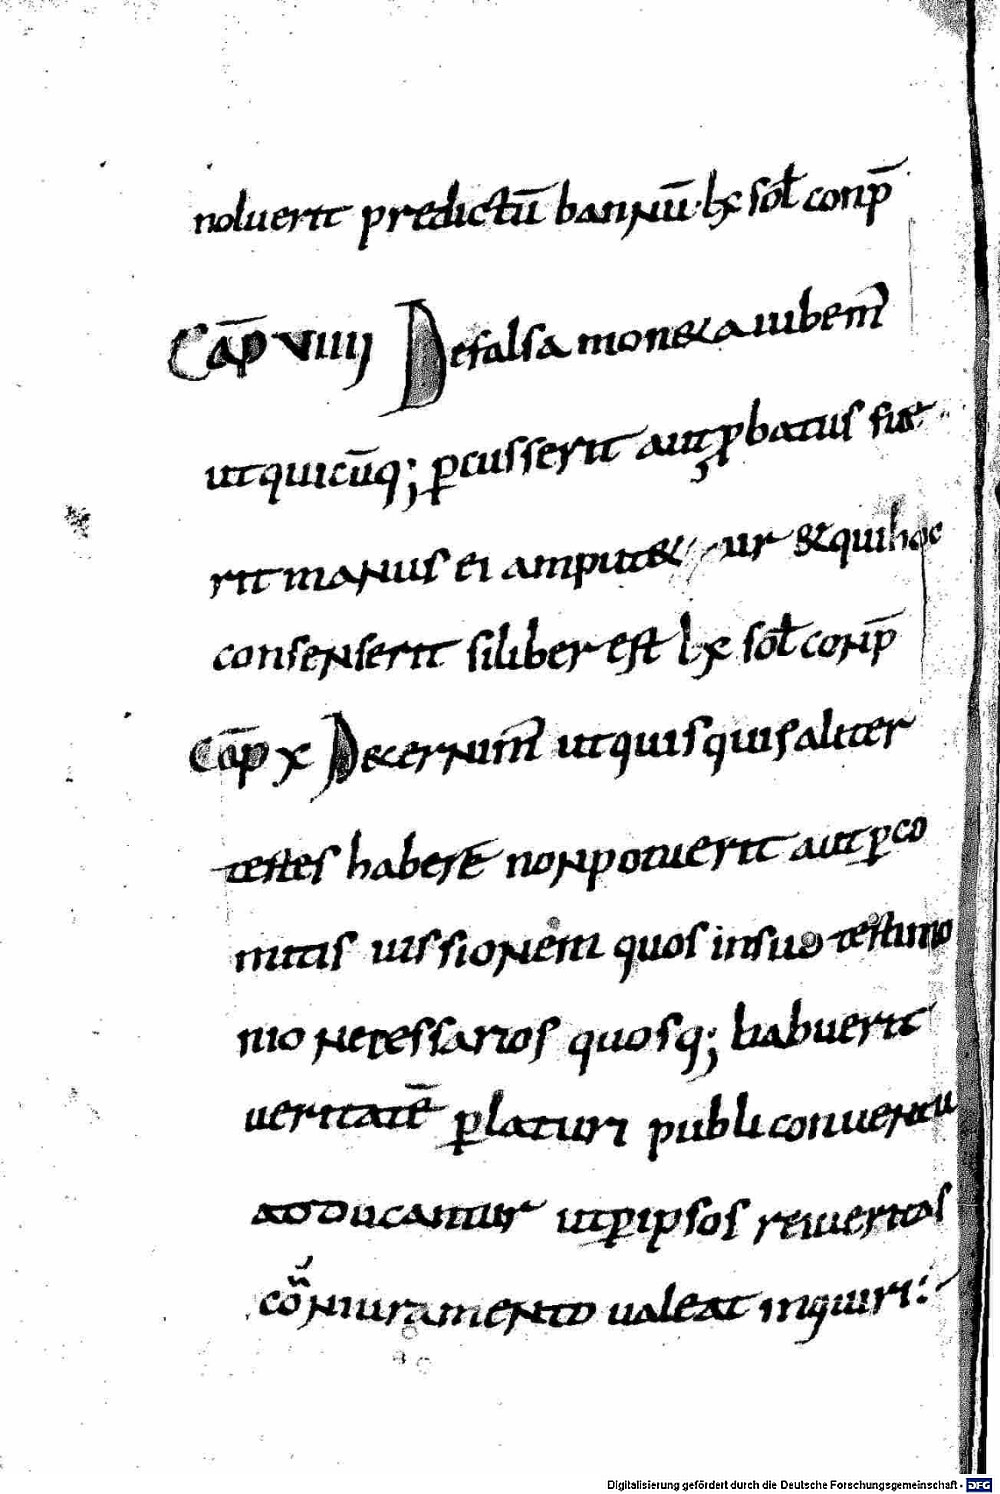 noluerit predictū bannū· lx sol̄ conp̄
Cap̄ VIIII De falsa moneta iubem̄
ut quicūq; ꝑcusserit aut ꝓbatus fue
rit manus ei amputetur & qui hoc
consenserit si liber est lx sol̄ conp̄
Cap̄ X Decernim̄ ut quisquis aliter
testes haberē non potuerit aut ꝑ co
mitis uissionem quos in suo testimo
nio necessarios quosq; habuerit
ueritatē ꝑlaturi publi conuentu
adducantur ut ꝑ ipsos rei ueritas
cōniuramento ualeat inquiri:
Digitalisierung gefördert durch die Deutsche Forschungsgemeinschaft - DFG